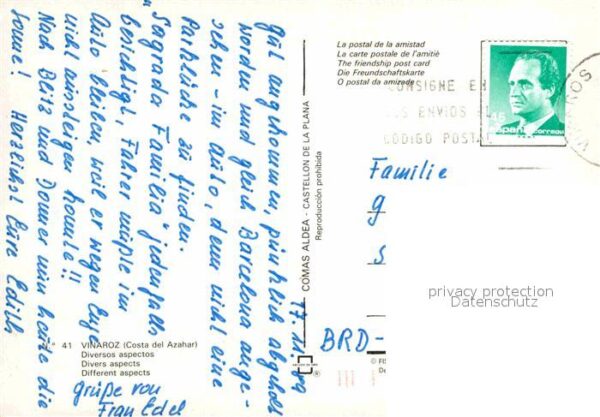 17. 11. 89
Gut angekommen, pünktlich abgeholt
worden und gleich Barcelona ange-
sehen - im Auto, denn nicht eine
Parklücke zu finden.
"Sagrada Familia" jedenfalls
besichtigt, Fahrer mußte im
Auto bleiben, weil er wegen Enge
nicht aussteigen konnte!!
Nach Blitz und Donner nun heute die
Sonne! Herzlichst Eure Edith
Grüße von
Frau Edel
N.° 41 VINAROZ (Costa del Azahar)
Diversos aspectos
Divers aspects
Different aspects
COMAS ALDEA - CASTELLON DE LA PLANA
Reproducción prohibida
La postal de la amistad
La carte postale de l'amitiè
The friendship post card
Die Freundschaftskarte
O postal da amizade
CONSIGNE EN
SUS ENVIOS EL
CODIGO POSTAL
VINAROS
15
España correos
Familie
G
S
BRD-
privacy protection
Datenschutz